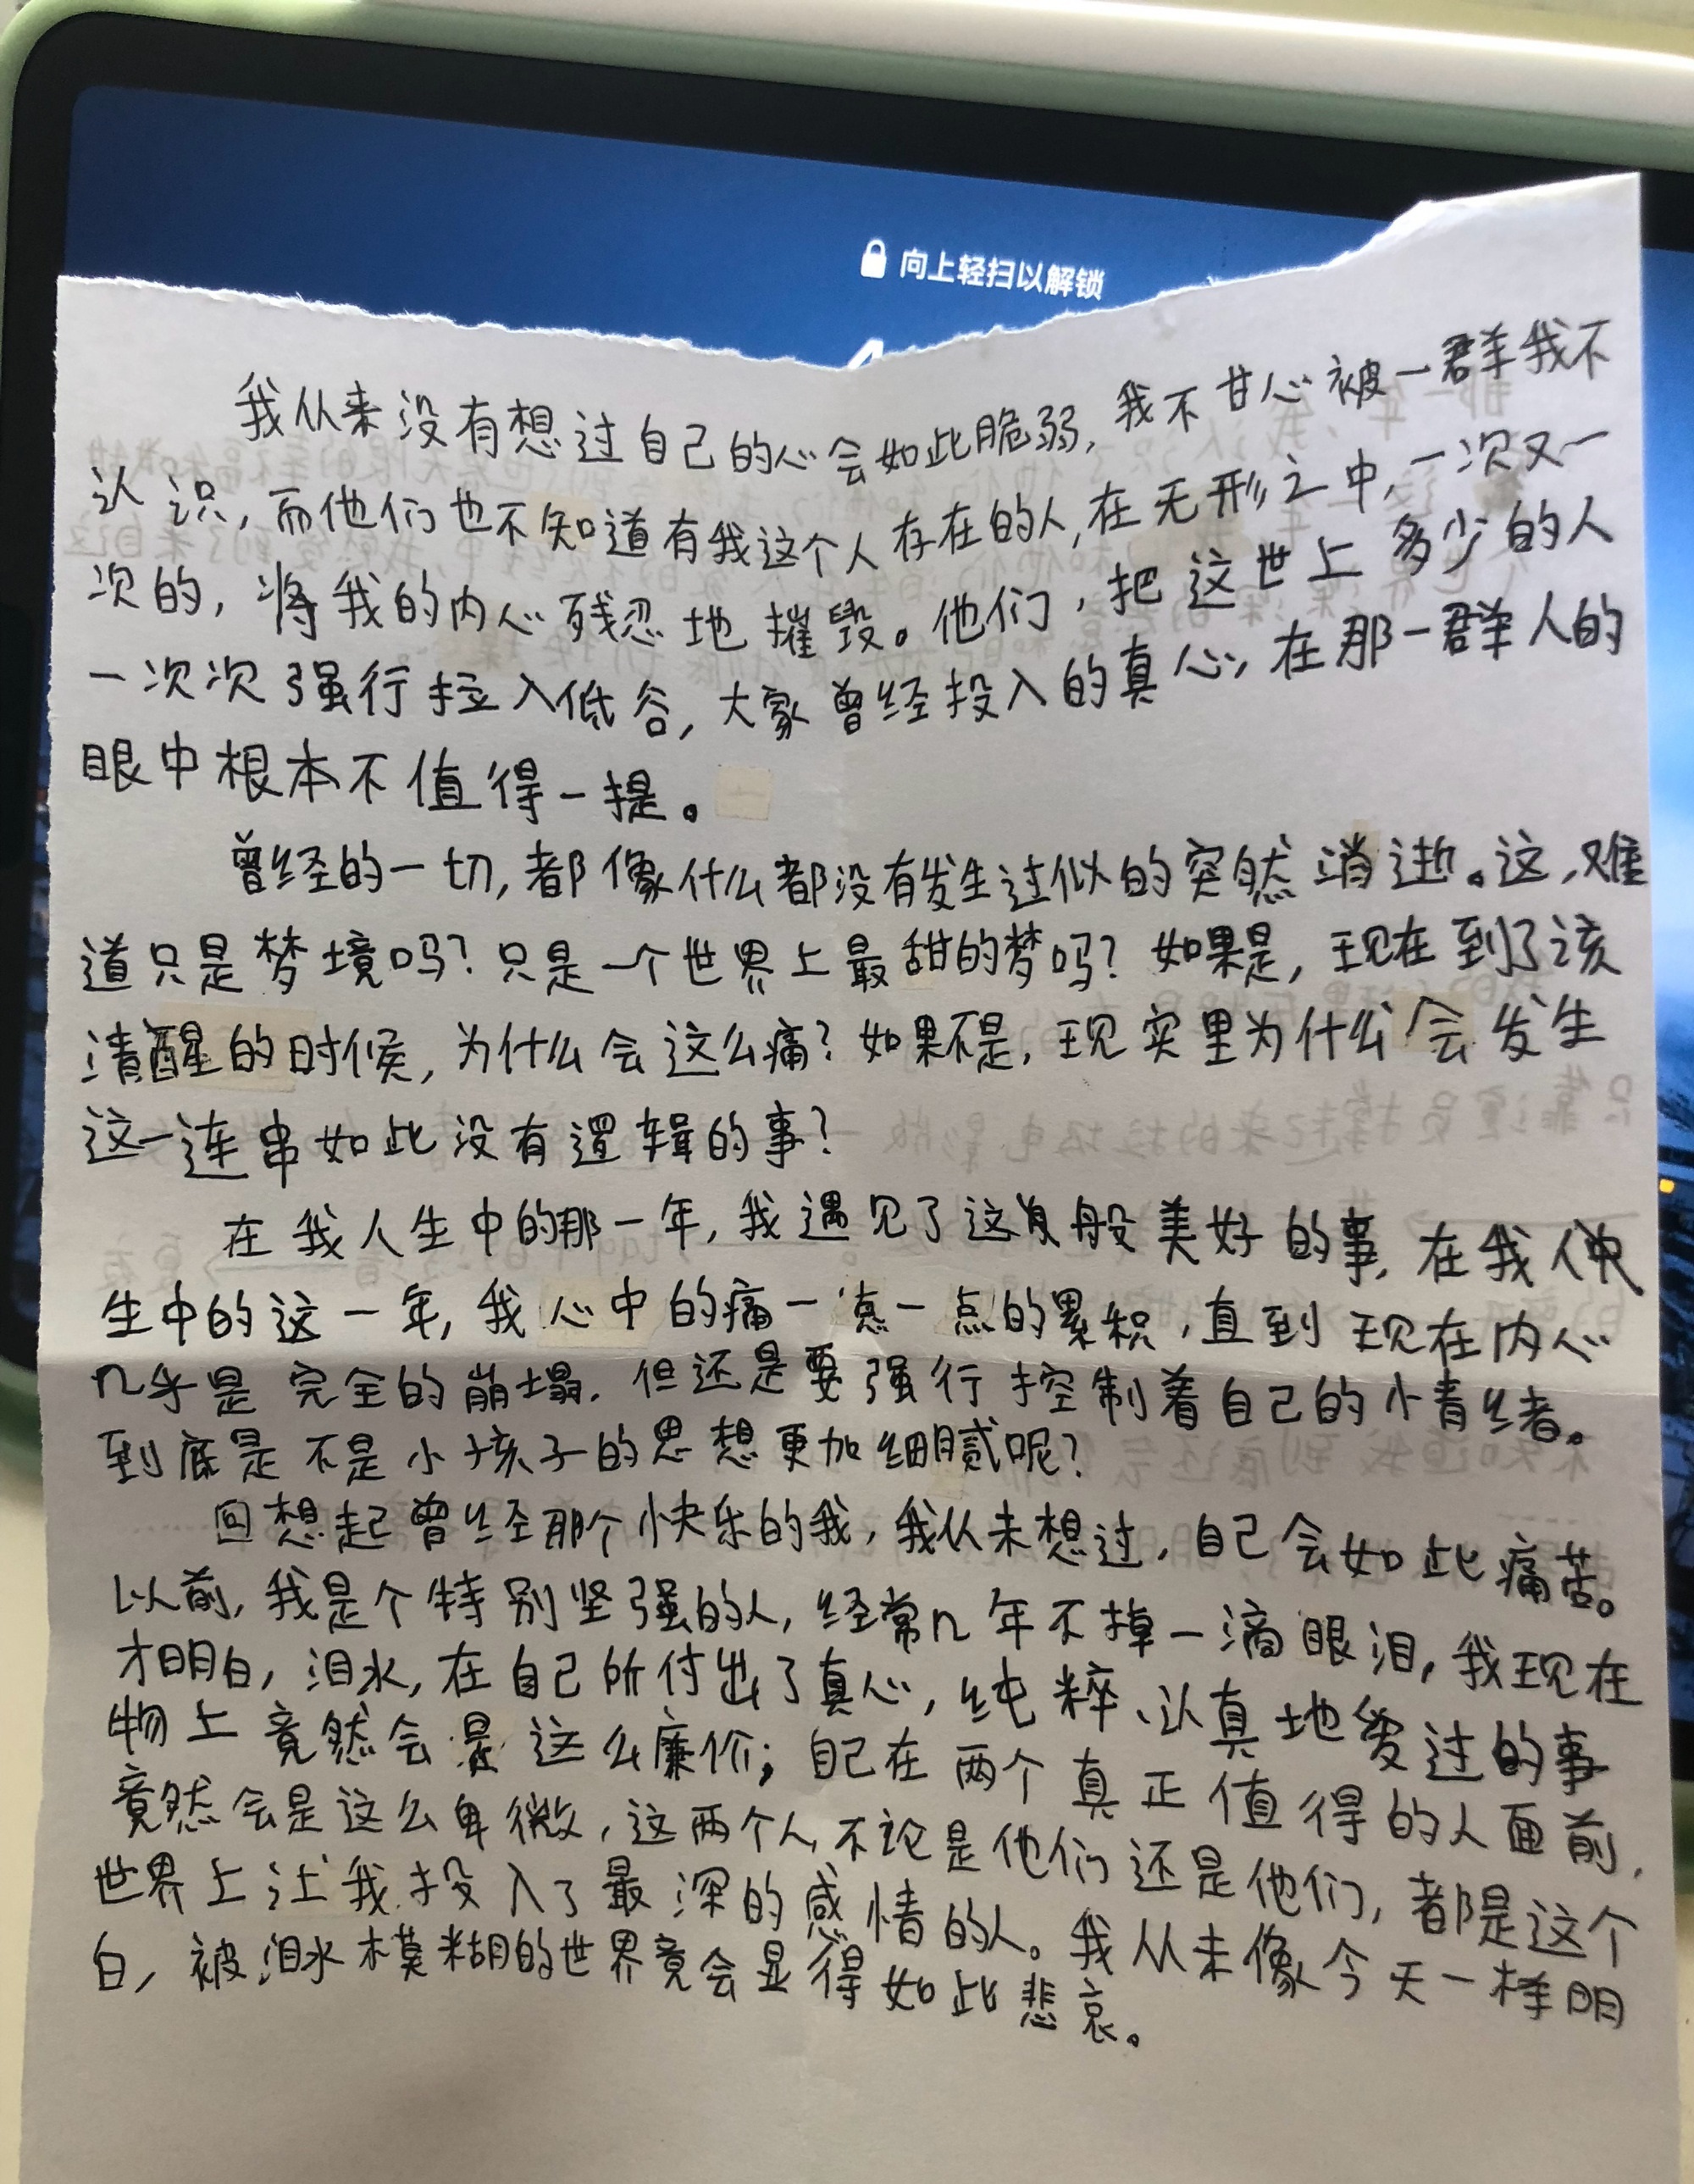 向上轻扫以解锁
我从来没有想过自己的心会如此脆弱，我不甘心被一群我不
认识，而他们也不知道有我这个人存在的人，在无形之中，一次又一
次的，将我的内心残忍地摧毁。他们，把这世上多少的人
一次次强行拉入低谷，大家曾经投入的真心，在那一群人的
眼中根本不值得一提。
曾经的一切，都像什么都没有发生过似的突然消逝。这，难
道只是梦境吗？只是一个世界上最甜的梦吗？如果是，现在到了该
清醒的时候，为什么会这么痛？如果不是，现实里为什么会发生
这一连串如此没有逻辑的事？
在我人生中的那一年，我遇见了这般美好的事，在我人
生中的这一年，我心中的痛一点一点的累积，直到现在内心
几乎是完全的崩塌，但还是要强行控制着自己的小情绪。
到底是不是小孩子的思想更加细腻呢？
回想起曾经那个快乐的我，我从未想过，自己会如此痛苦。
以前，我是个特别坚强的人，经常几年不掉一滴眼泪，我现在
才明白，泪水，在自己所付出了真心，纯粹、认真地爱过的事
物上竟然会是这么廉价；自己在两个真正值得的人面前，
竟然会是这么卑微，这两个人，不论是他们还是他们，都是这个
世界上让我投入了最深的感情的人。我从未像今天一样明
白，被泪水模糊的世界竟会显得如此悲哀。